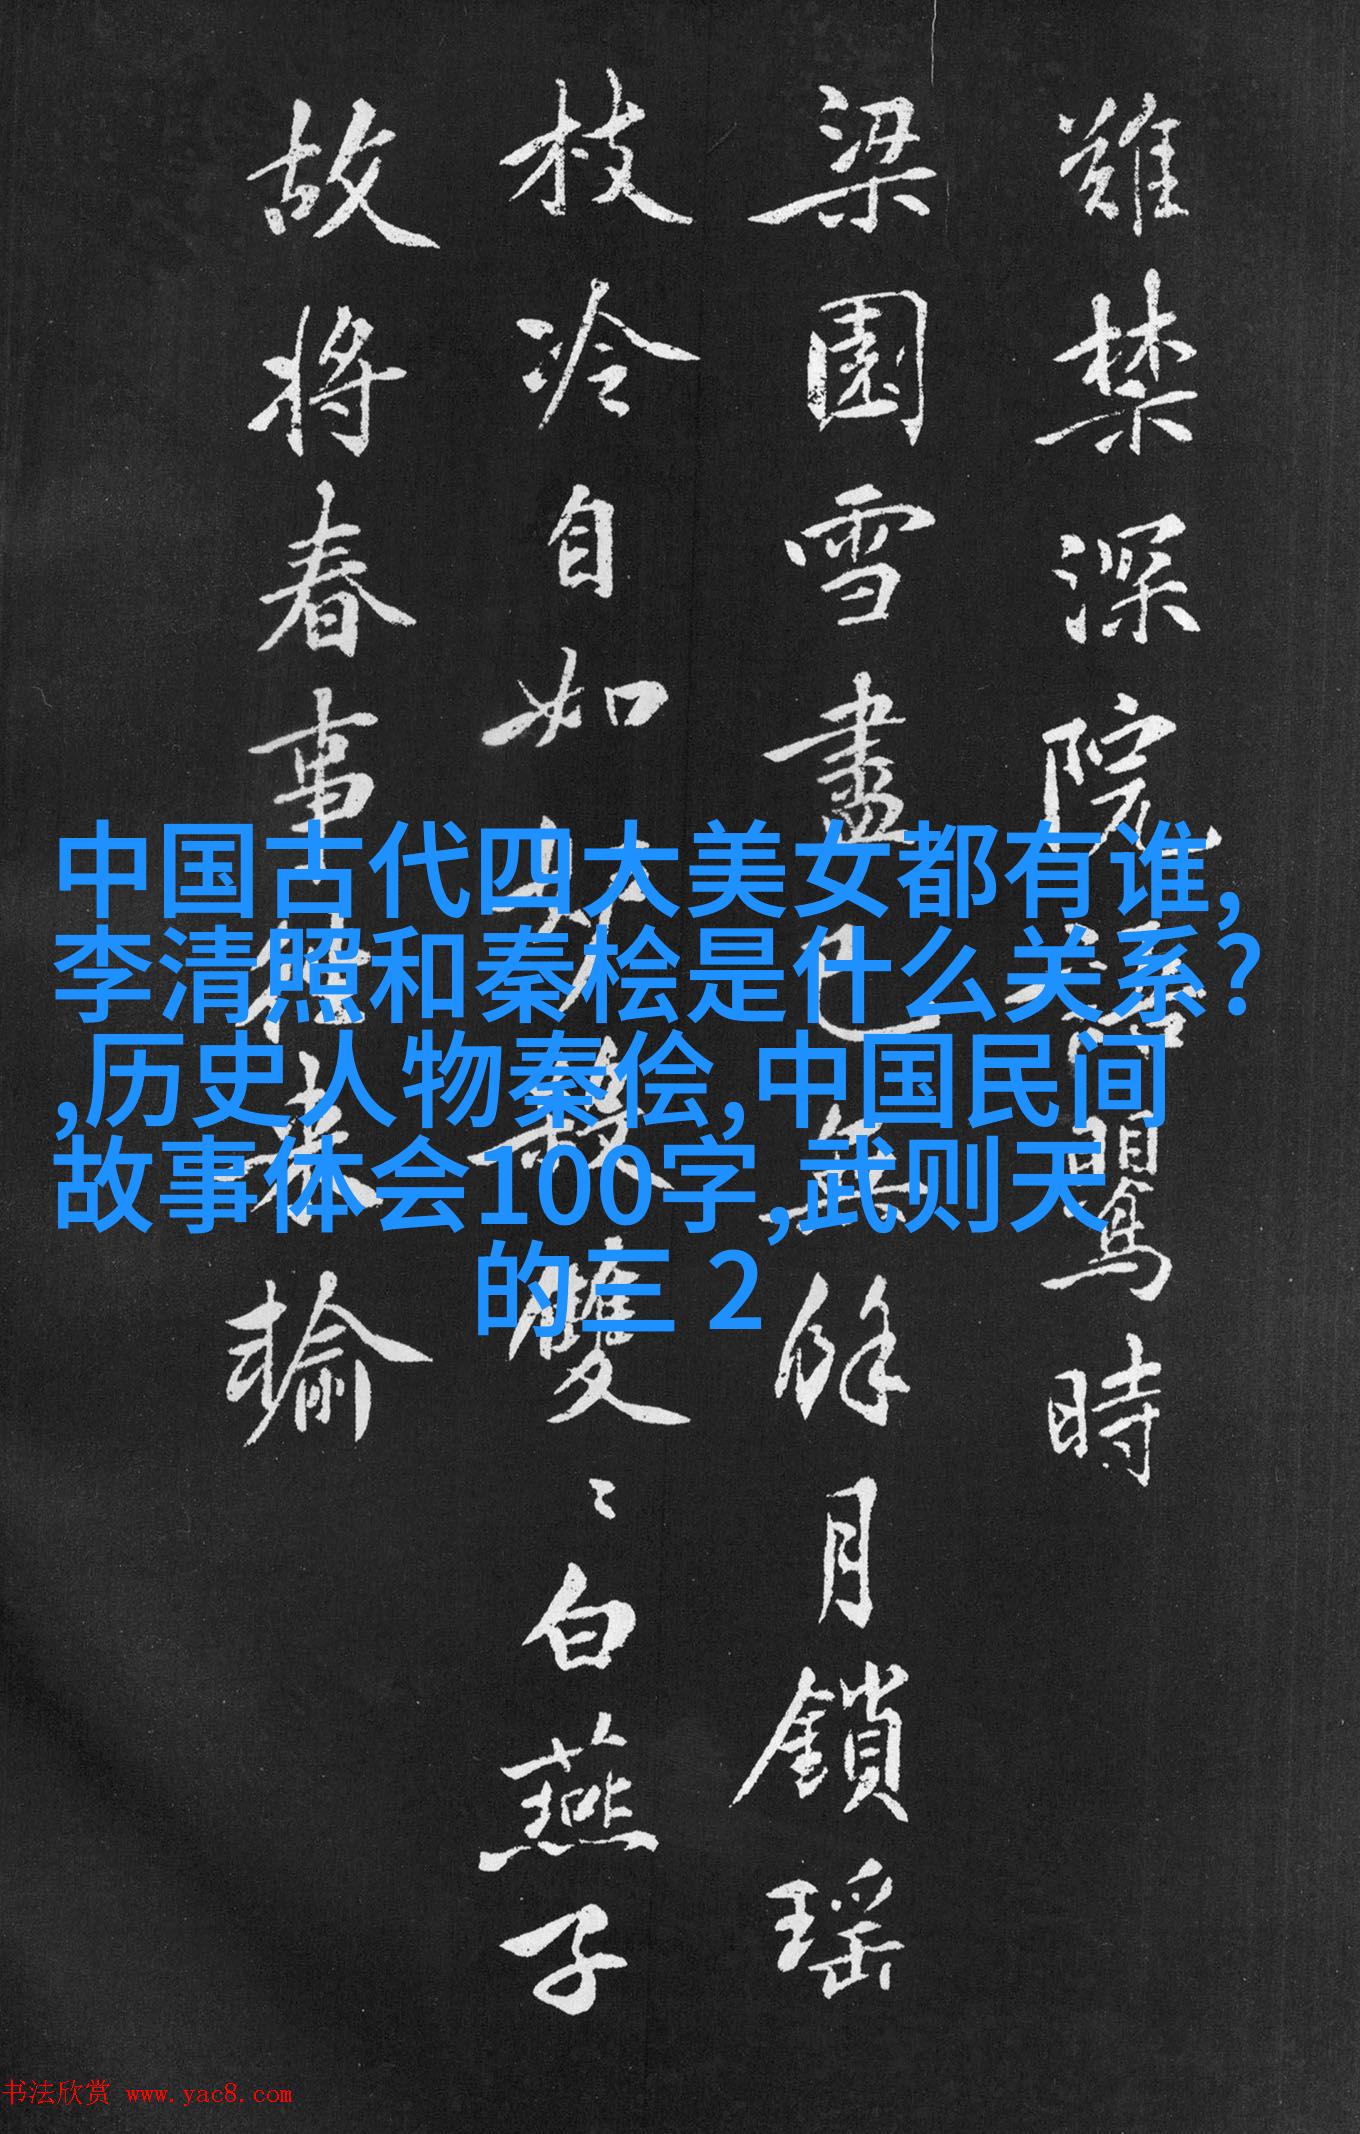 難禁深院語鸎時
梁園雪盡已無餘月鎖瑶
枝冷自如殺雙〻白燕子
故將春事輸
中国古代四大美女都有谁,
李清照和秦桧是什么关系?
,历史人物秦侩,中国民间
故事体会100字,武则天
的三 2
书法欣赏 www.yac8.com